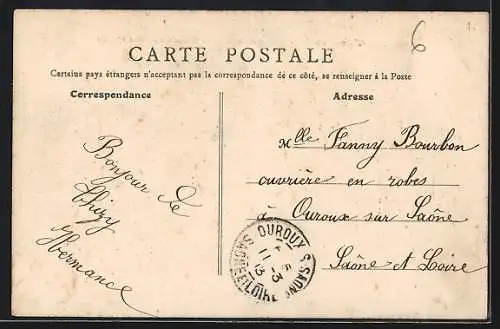 6
CARTE POSTALE
Certains pays étrangers n'acceptant pas la correspondance de ce côté, se renseigner à la Poste
Correspondance
Adresse
Bonjour de
Thizy
Hermance
Mlle Fanny Bourbon
ouvrière en robes
à Ouroux sur Saône
Saône et Loire
OUROUX S. SAONE
SAONE-ET-LOIRE